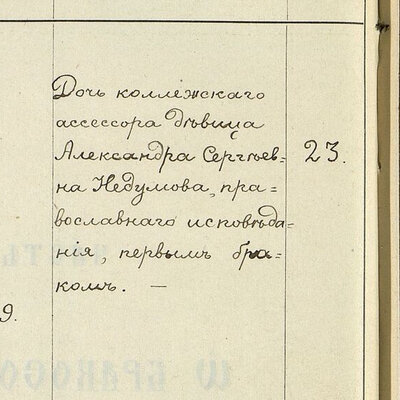 Дочь коллежскаго
ассессора дѣвица
Александра Сергѣев=
на Недумова, пра=
вославнаго исповѣда=
нія, первымъ бра=
комъ. —
23.
9.